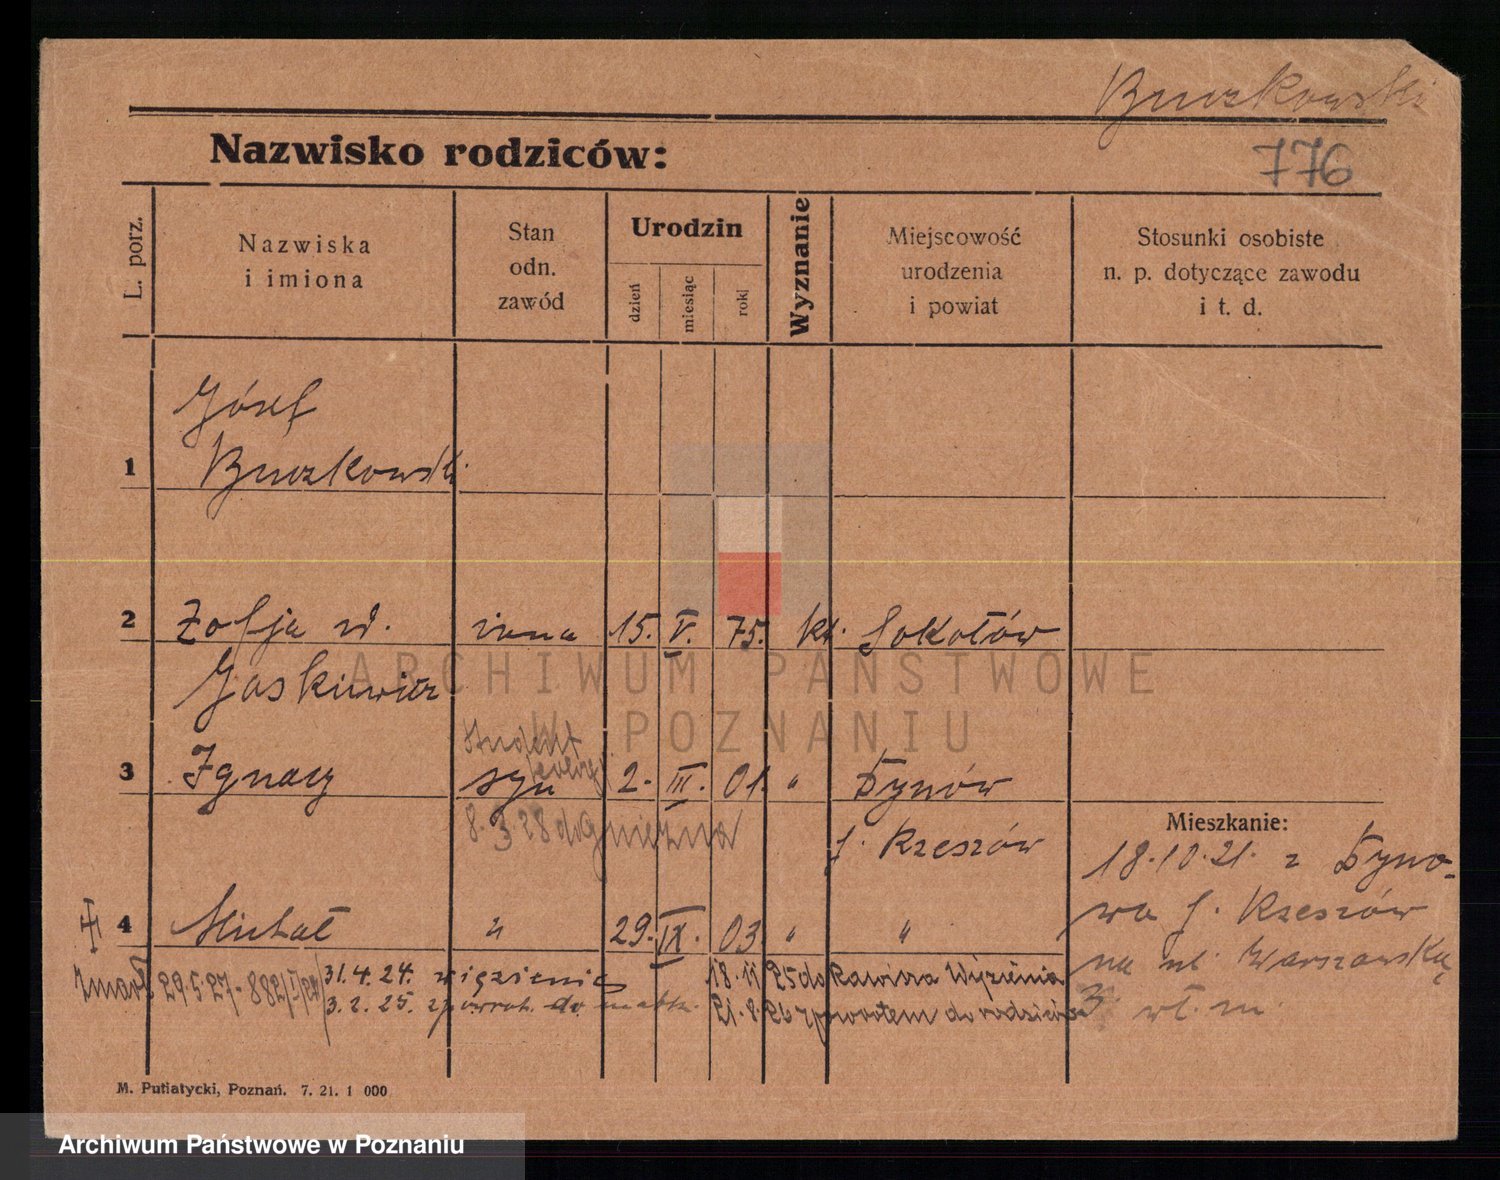 Buczkowski
776
Nazwisko rodziców:
L. porz.
Nazwiska
i imiona
Stan
odn.
zawód
Urodzin
dzień
miesiąc
rok
Wyznanie
Miejscowość
urodzenia
i powiat
Stosunki osobiste
n. p. dotyczące zawodu
i t. d.
Józef
1 Buczkowski
2 Zofja ur. żona 15. V. 75. kt. Sokołów
Jaskiewicz
student
3 Ignacy syn 2. III. 01. " Dynów
8.3.28 do Gniezna
p. Rzeszów
Mieszkanie:
18.10.21. z Dyno-
wa p. Rzeszów
na ul. Warszawską
3
4 Michał " 29. IX. 03 " "
Zmarł 29.5.27 - 882/
31.4.24. więzienie
3.2.25. z powrot. do matk.
18.11 25 do Rawicza Więzienia
21.8.26 z powrotem do rodziców
M. Putiatycki, Poznań. 7. 21. 1 000
ARCHIWUM PAŃSTWOWE
W POZNANIU
Archiwum Państwowe w Poznaniu